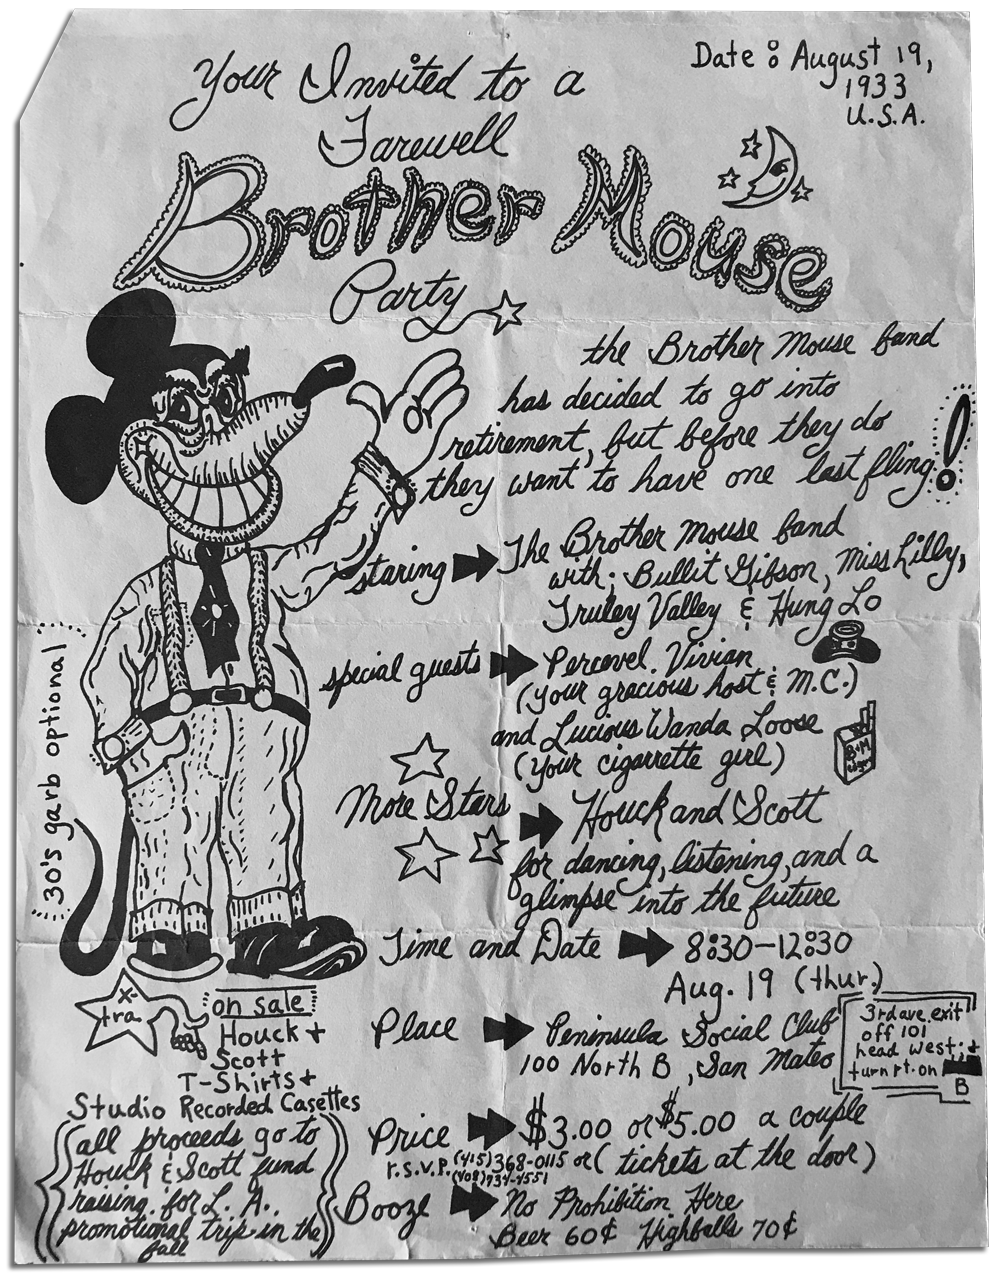 Date: August 19,
1933
U.S.A.
Your Invited to a
Farewell
Brother Mouse
Party
the Brother Mouse band
has decided to go into
retirement, but before they do
they want to have one last fling!
staring The Brother Mouse band
with; Bullit Gibson, Miss Lilly,
Truley Valley & Hung Lo
special guests Percevel. Vivian
(your gracious host & M.C.)
and Lucious Wanda Loose
(your cigarrette girl)
B&M
30's garb optional
More Stars Houck and Scott
for dancing, listening, and a
glimpse into the future
Time and Date 8:30-12:30
Aug. 19 (thur.)
Place Peninsula Social Club
100 North B, San Mateo
3rd ave. exit
off 101
head west &
turn rt. on
B
x-
tra
on sale
Houck &
Scott
T-Shirts &
Studio Recorded Casettes
{all proceeds go to
Houck & Scott fund
raising for L.A.
promotional trip in the
fall}
Price $3.00 or $5.00 a couple
r.s.v.p. (415) 368-0115 or (tickets at the door)
(408) 734-4551
Booze No Prohibition Here
Beer 60¢ Highballs 70¢